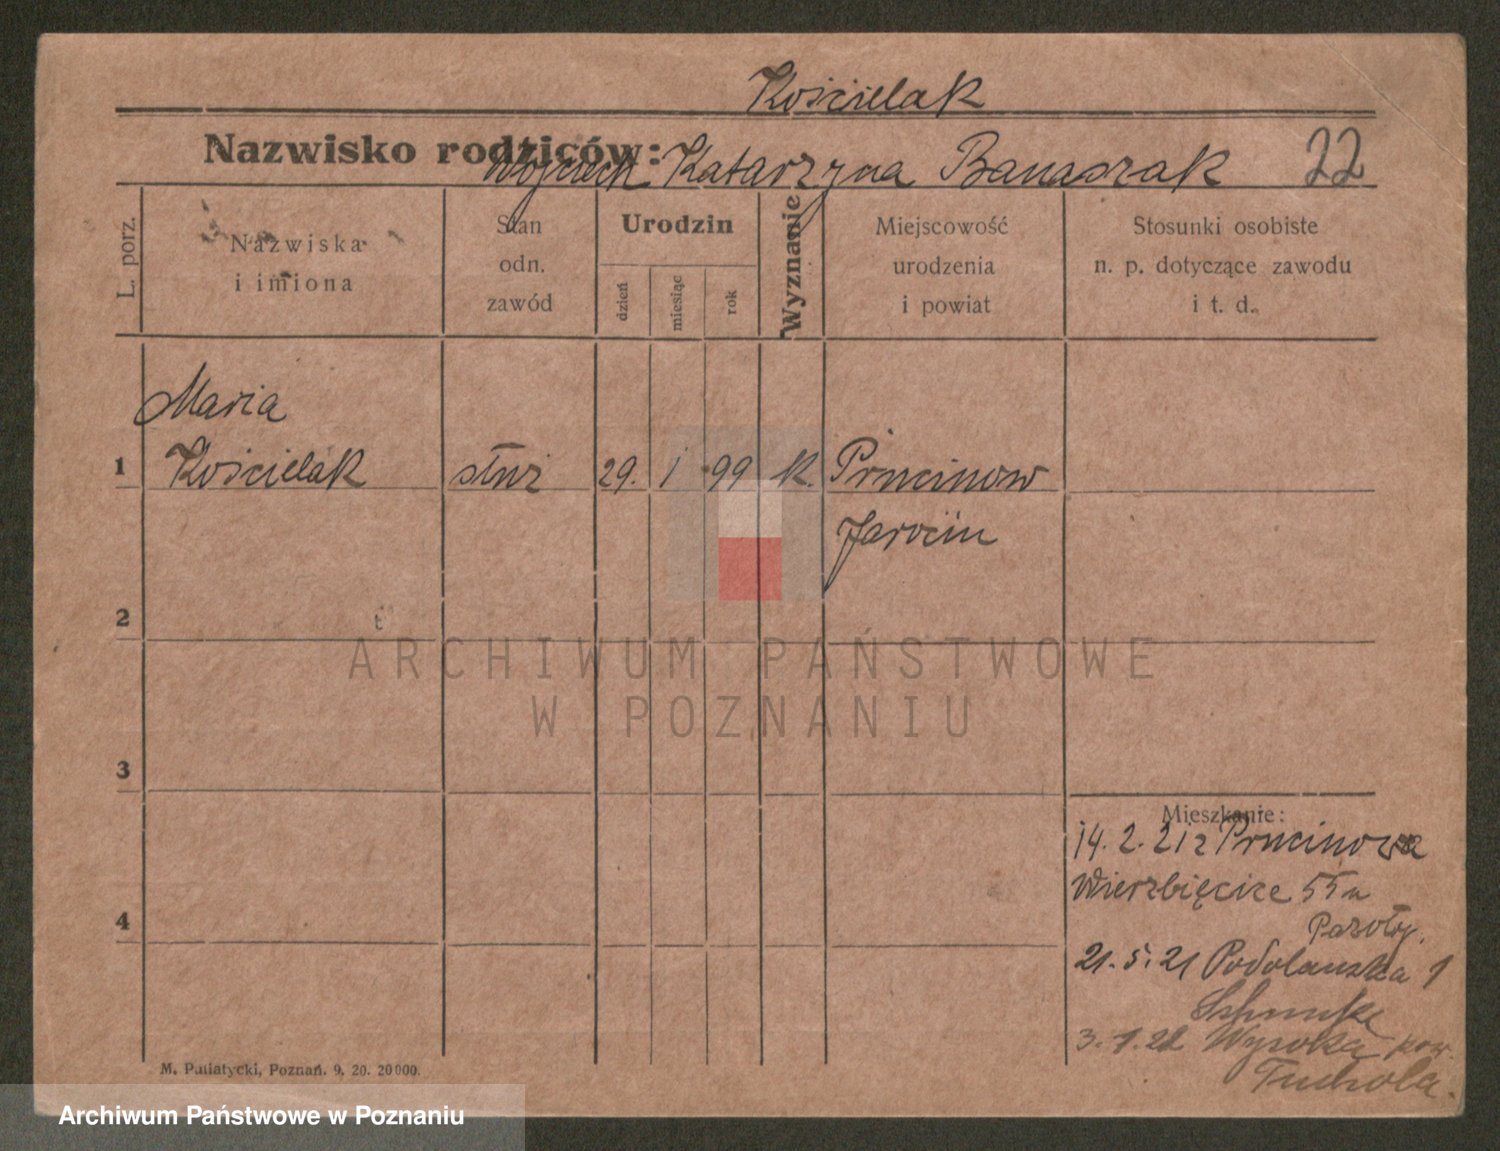 Kościelak
Nazwisko rodziców: Wojciech Katarzyna Banaszak 22
L. porz.
Nazwiska
i imiona
Stan
odn.
zawód
Urodzin
dzień
miesiąc
rok
Wyznanie
Miejscowość
urodzenia
i powiat
Stosunki osobiste
n. p. dotyczące zawodu
i t. d.
Maria
1 Kościelak służ 29. 1 99 k. Prucinow
Jarocin
2
3
4
Mieszkanie:
14.2.21 z Prucinowa
Wierzbięcice 55 u
21.5.21 Podolanska 1
Wysoka pow.
Tuchola.
M. Putiatycki, Poznań. 9. 20. 20000.
ARCHIWUM PAŃSTWOWE
W POZNANIU
Archiwum Państwowe w Poznaniu